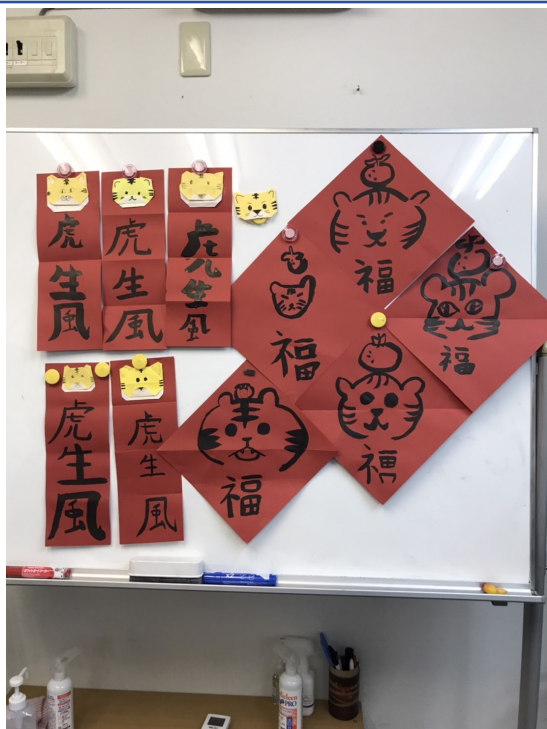 虎生風
虎生風
虎生風
虎生風
虎生風
福
福
福
福
福
PRO